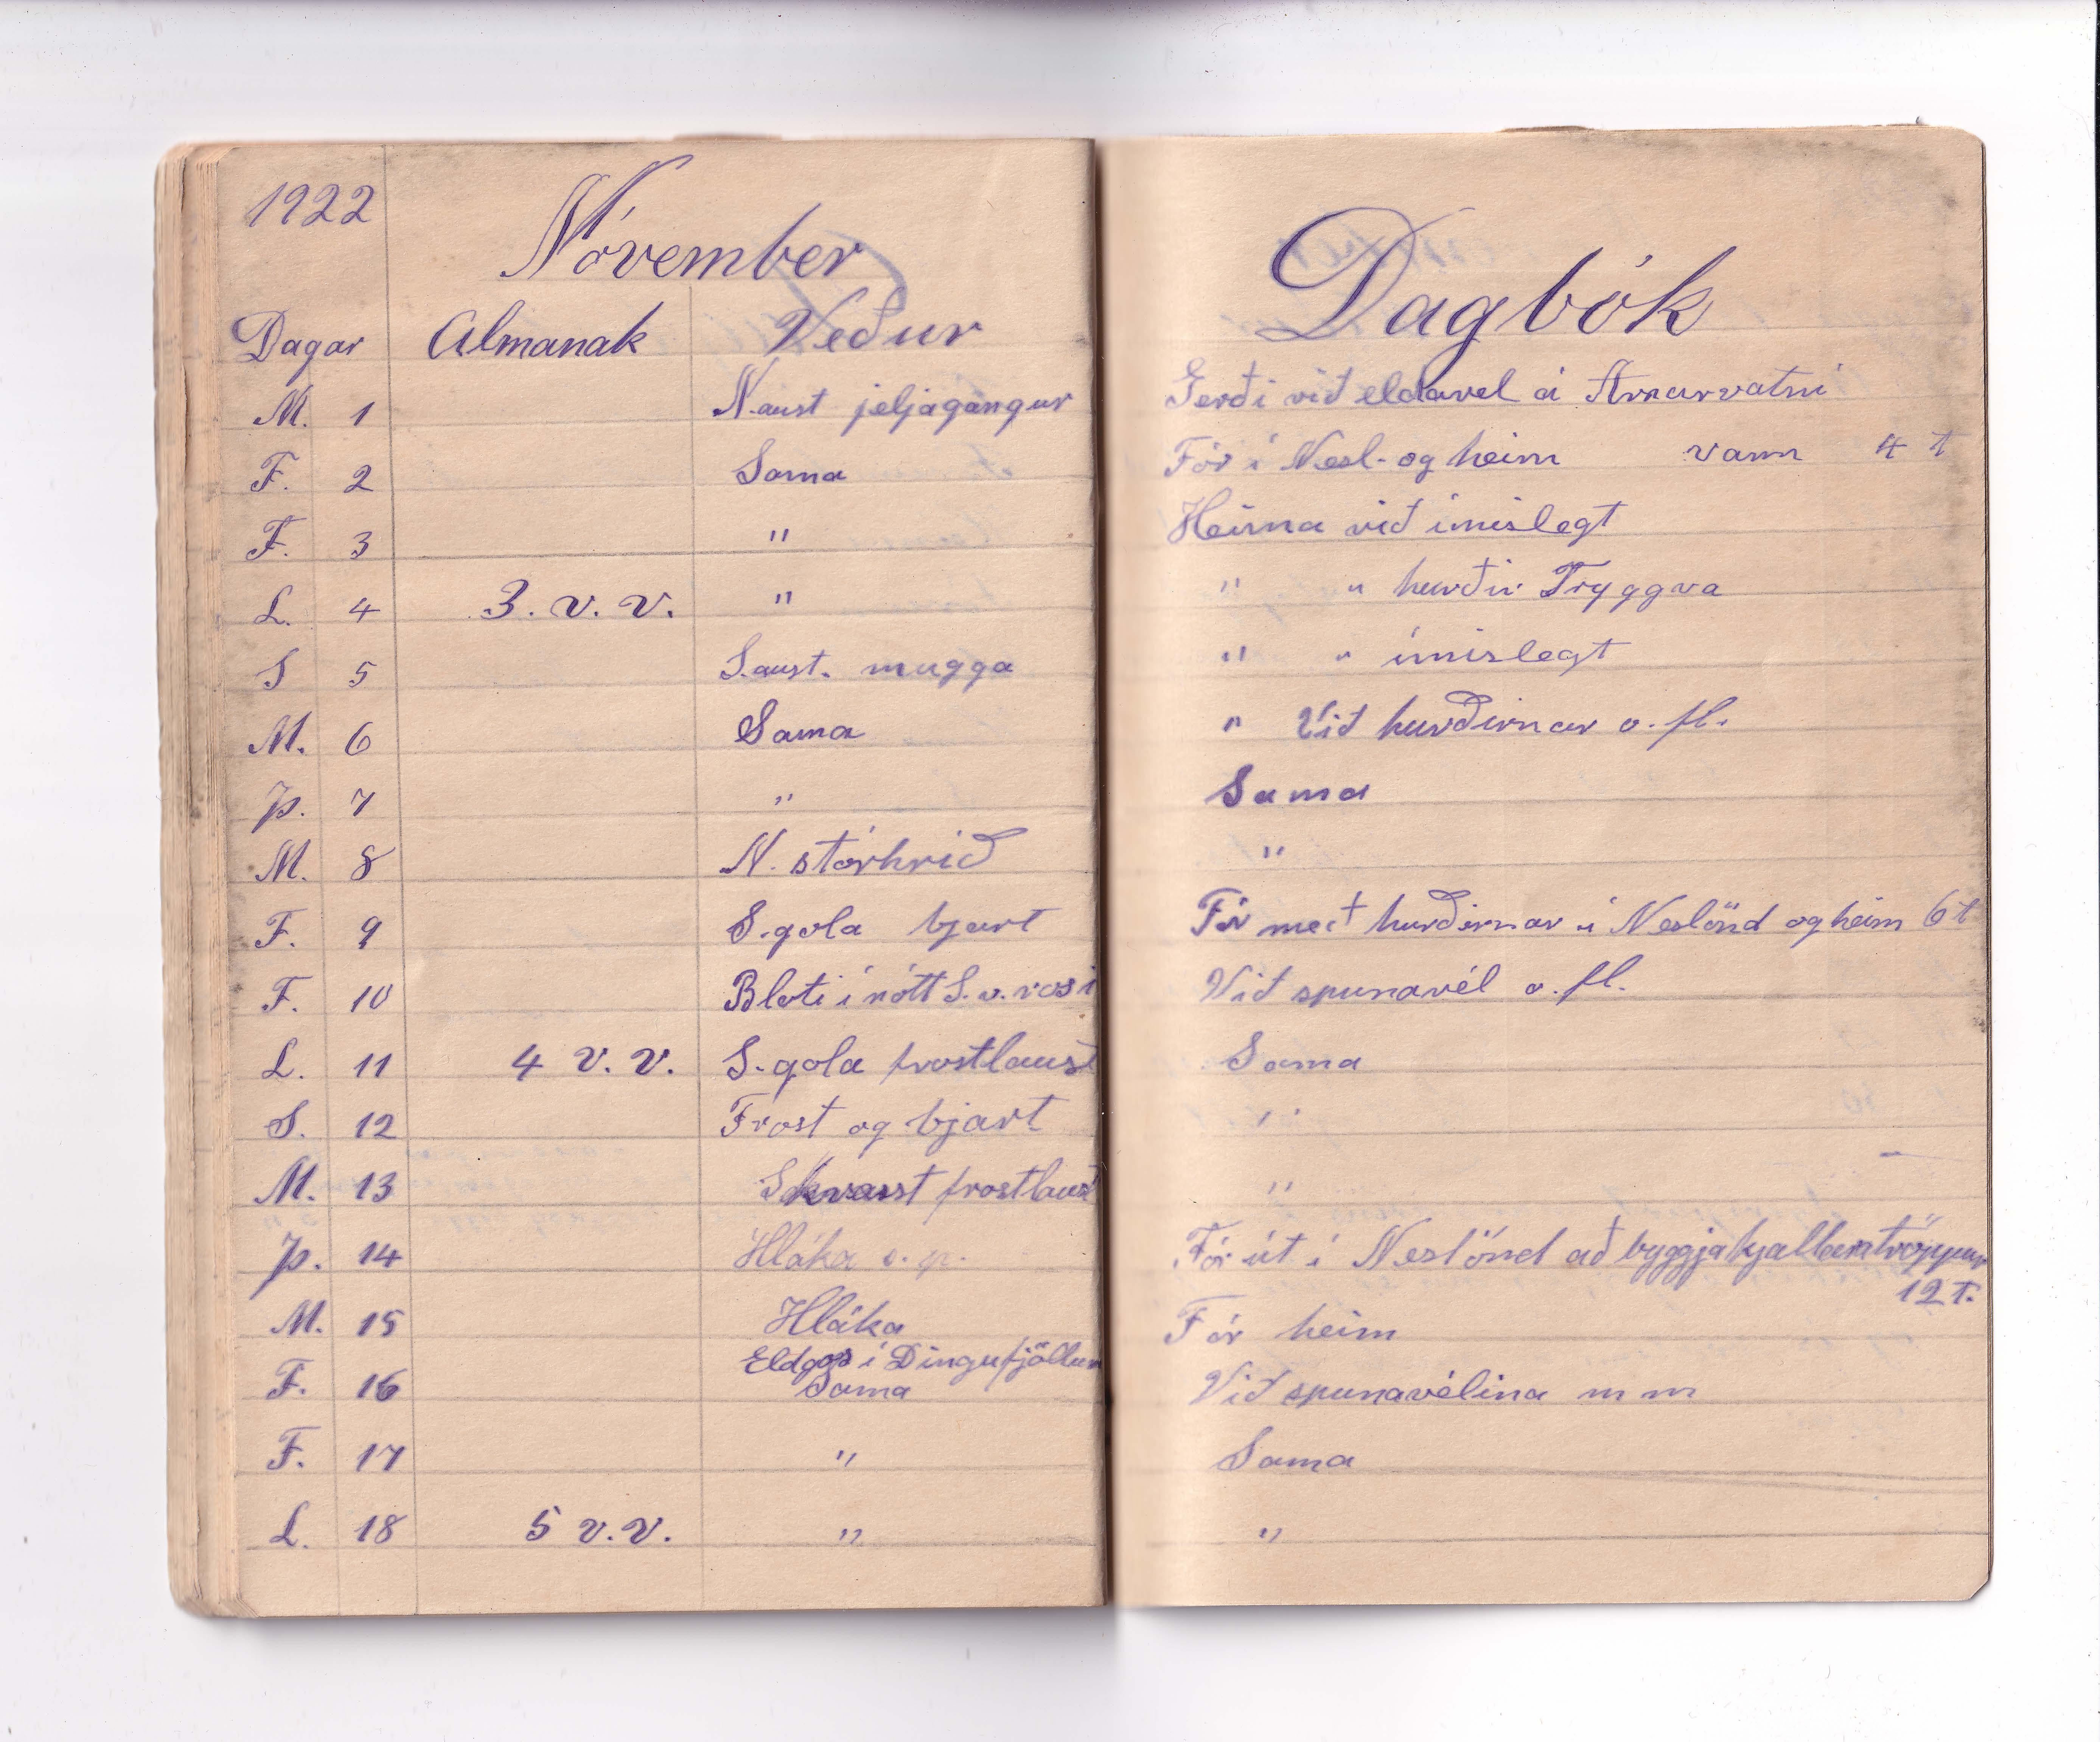 1922
Nóvember
Dagar Almanak Veður
M. 1 N.aust jeljagangur
F. 2 Sama
F. 3 "
L. 4 3. v. v. "
S 5 S.aust. mugga
M. 6 Sama
Þ. 7 "
M. 8 N. stórhríð
F. 9 S.gola bjart
F. 10 Bloti í nótt S.v. rosi
L. 11 4 v. v. S.gola frostlaust
S. 12 Frost og bjart
M. 13 S kvasst frostlaust
Þ. 14 Hláka
M. 15 Hláka
Eldgos í Dingufjöllum
F. 16 Sama
F. 17 "
L. 18 5 v.v. "
Dagbók
Gerði við eldavel á Arnarvatni
Fór í Nesl- og heim vann 4 t
Heima við ímislegt
" " hurðir Tryggva
" " ímislegt
" Við hurðirnar o. fl.
Sama
"
Fór með hurðirnar í Neslönd og heim 6 t
Við spunavél o. fl.
Sama
"
"
Fór út í Neslönd að byggja kjallaratröppur
12 T.
Fór heim
Við spunavélina m m
Sama
"